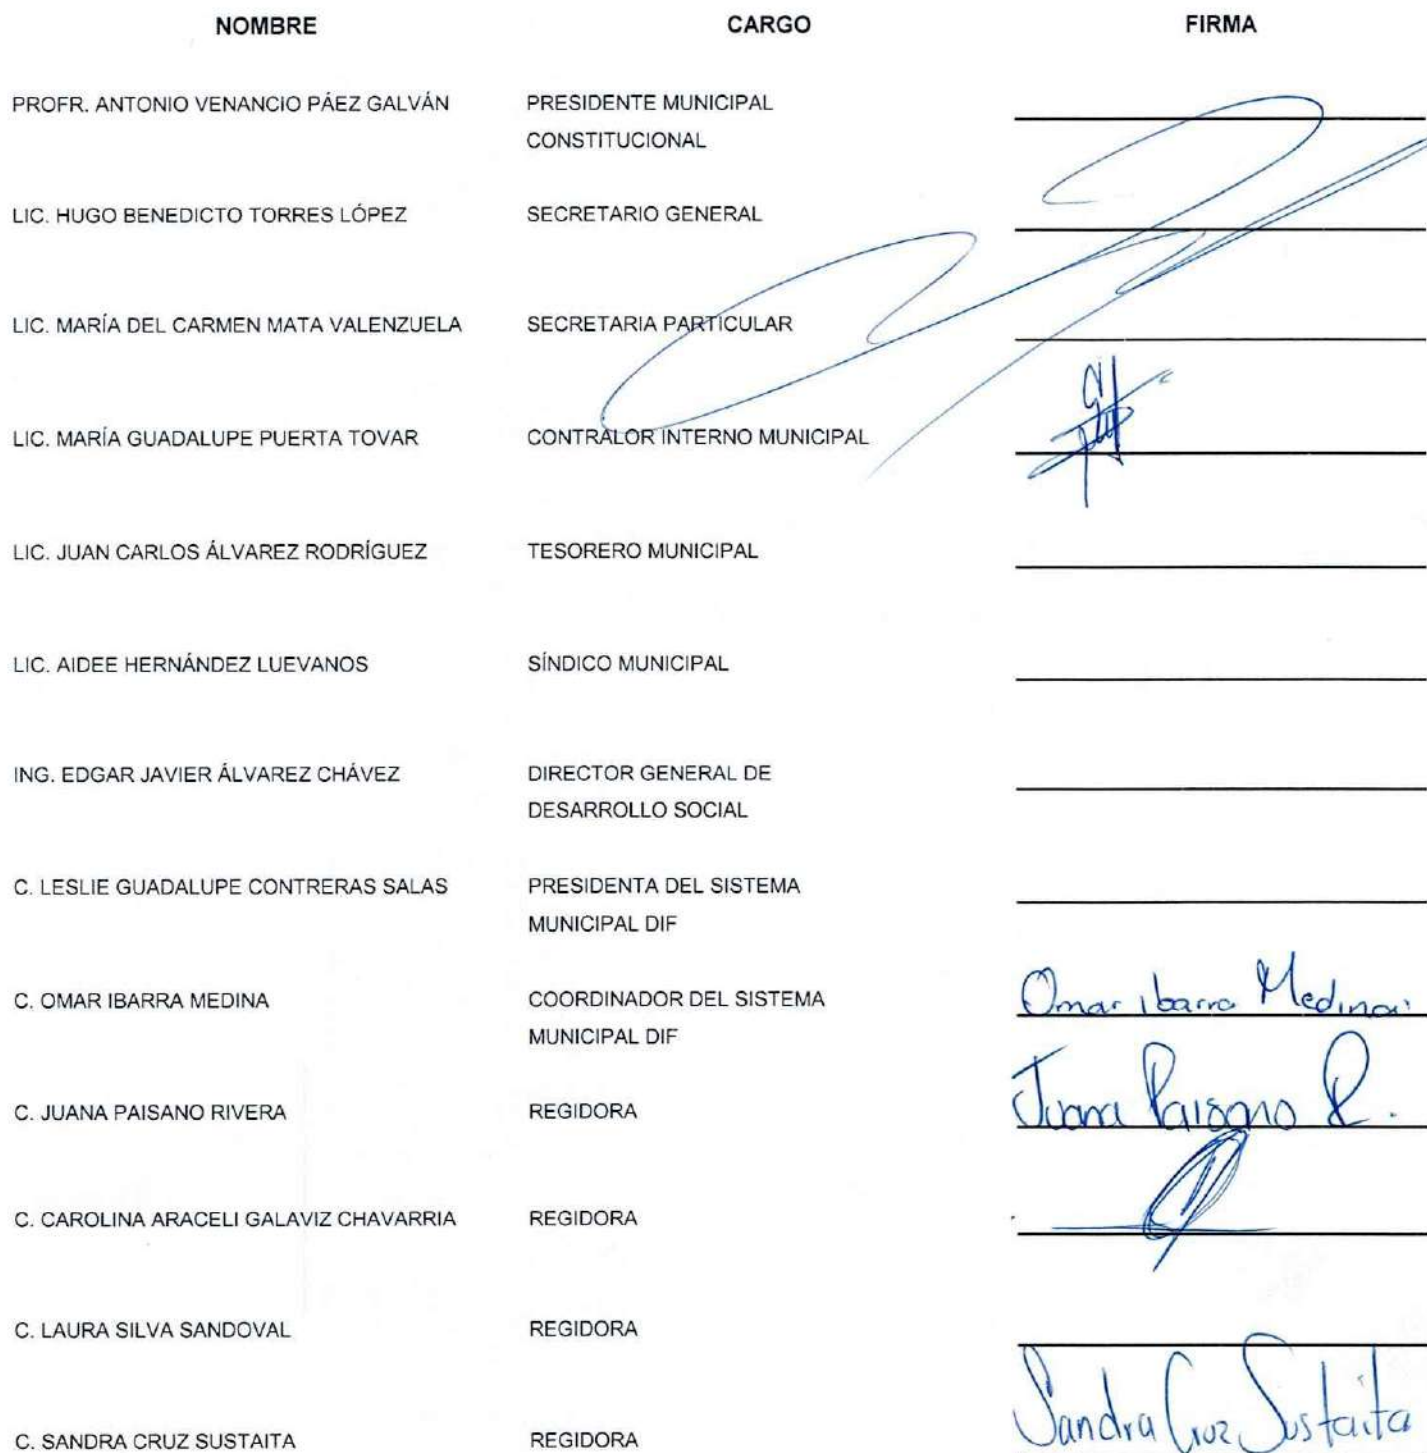 NOMBRE CARGO FIRMA
PROFR. ANTONIO VENANCIO PÁEZ GALVÁN PRESIDENTE MUNICIPAL
CONSTITUCIONAL
LIC. HUGO BENEDICTO TORRES LÓPEZ SECRETARIO GENERAL
LIC. MARÍA DEL CARMEN MATA VALENZUELA SECRETARIA PARTICULAR
LIC. MARÍA GUADALUPE PUERTA TOVAR CONTRALOR INTERNO MUNICIPAL
LIC. JUAN CARLOS ÁLVAREZ RODRÍGUEZ TESORERO MUNICIPAL
LIC. AIDEE HERNÁNDEZ LUEVANOS SÍNDICO MUNICIPAL
ING. EDGAR JAVIER ÁLVAREZ CHÁVEZ DIRECTOR GENERAL DE
DESARROLLO SOCIAL
C. LESLIE GUADALUPE CONTRERAS SALAS PRESIDENTA DEL SISTEMA
MUNICIPAL DIF
C. OMAR IBARRA MEDINA COORDINADOR DEL SISTEMA Omar ibarra Medina
MUNICIPAL DIF
C. JUANA PAISANO RIVERA REGIDORA Juana Paisano R.
C. CAROLINA ARACELI GALAVIZ CHAVARRIA REGIDORA
C. LAURA SILVA SANDOVAL REGIDORA
C. SANDRA CRUZ SUSTAITA REGIDORA Sandra Cruz Sustaita